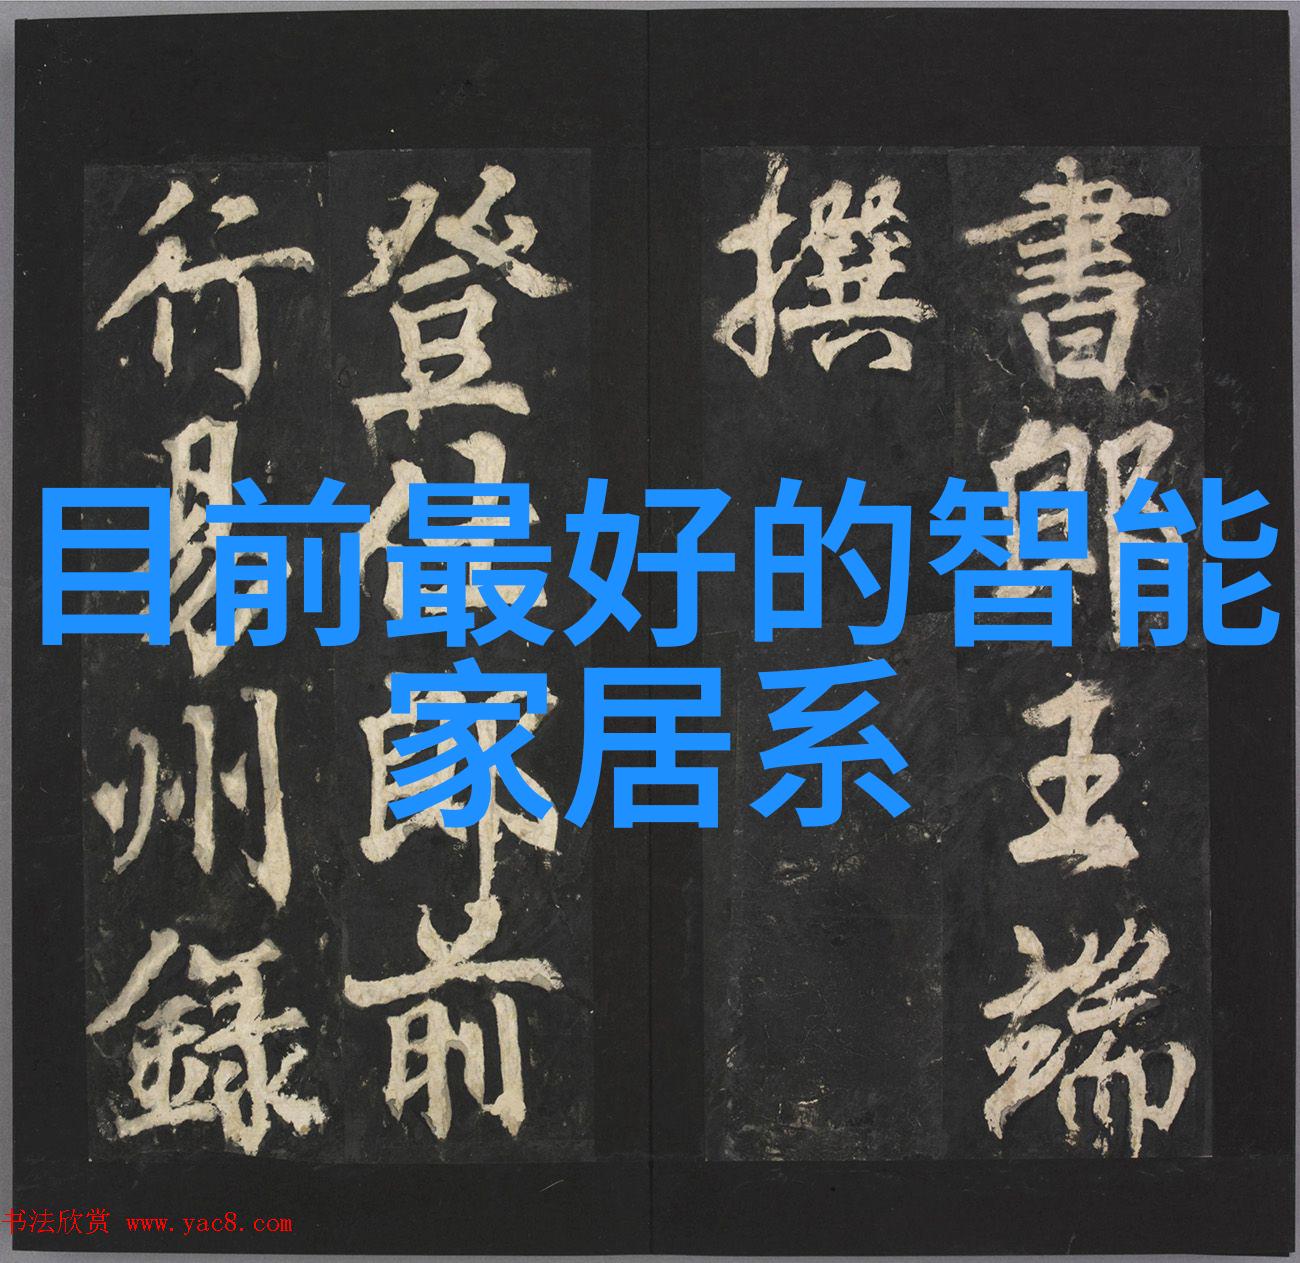 書郎王端
撰
登仕郎前
行易州錄
目前最好的智能
家居系
书法欣赏 www.yac8.com